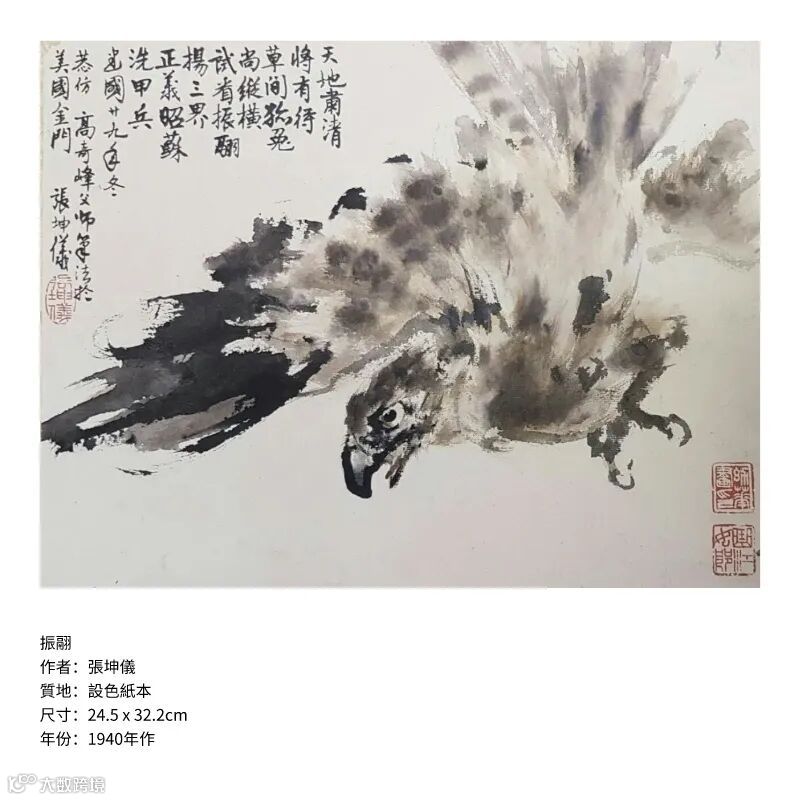 天地肅清
將有待
草間狐兔
尚縱橫
試看振翮
揚三界
正義昭蘇
洗甲兵
民國廿九年冬
恭仿 高奇峰父師筆法於
美國金門 張坤儀
振翮
作者：張坤儀
質地：設色紙本
尺寸：24.5 x 32.2cm
年份：1940年作
大数跨境